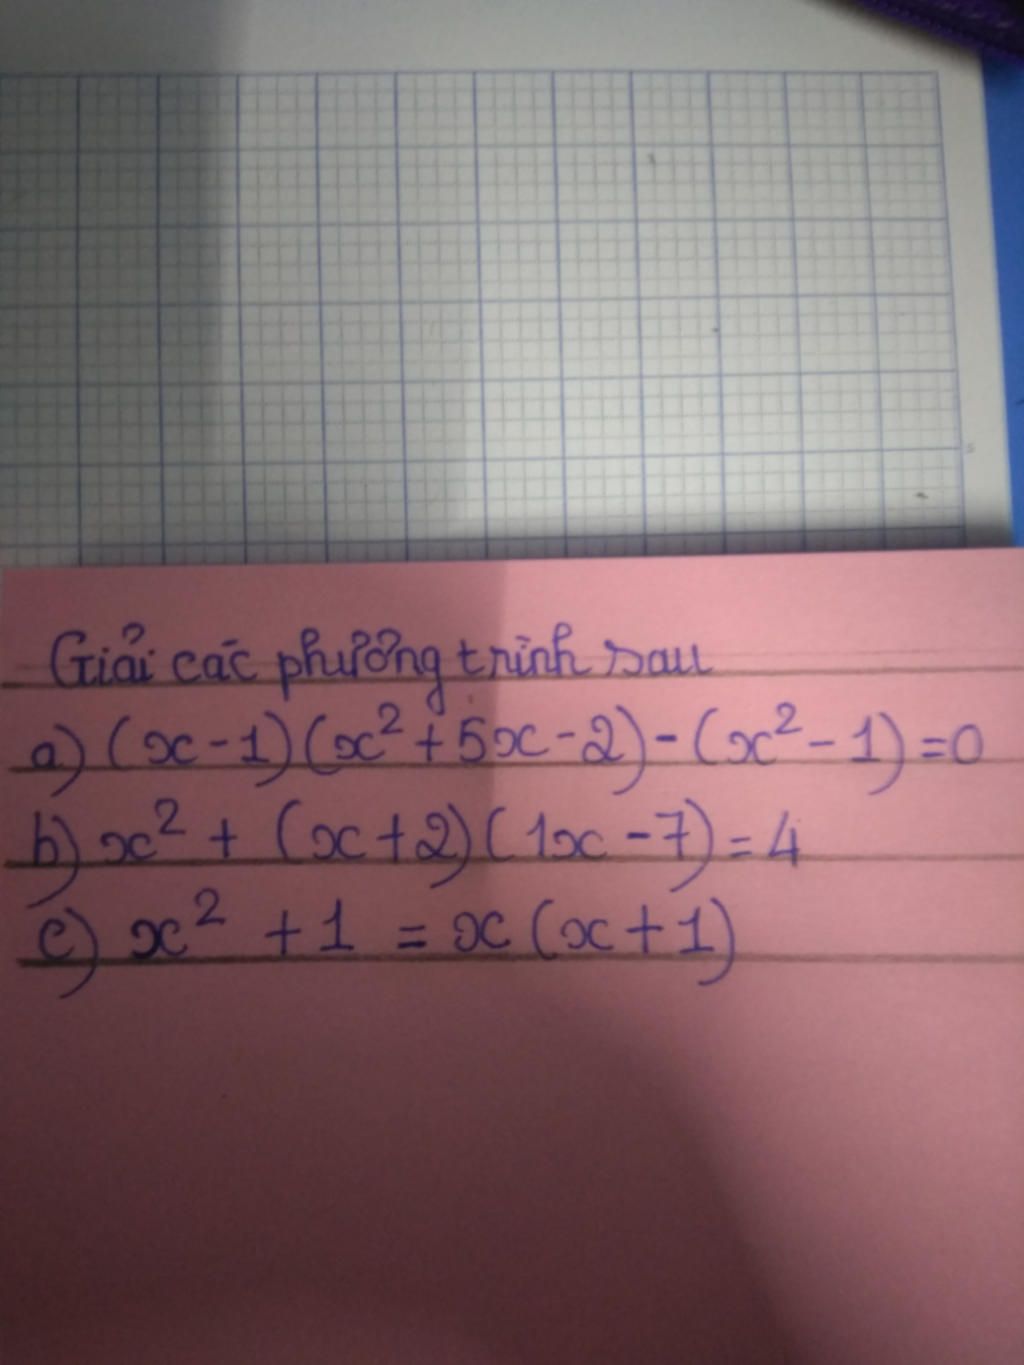 Giải các phương trình sau
a) (x-1)(x² + 5x - 2) - (x² - 1) = 0
b) x² + (x+2)(1x - 7) = 4
c) x² + 1 = x(x+1)